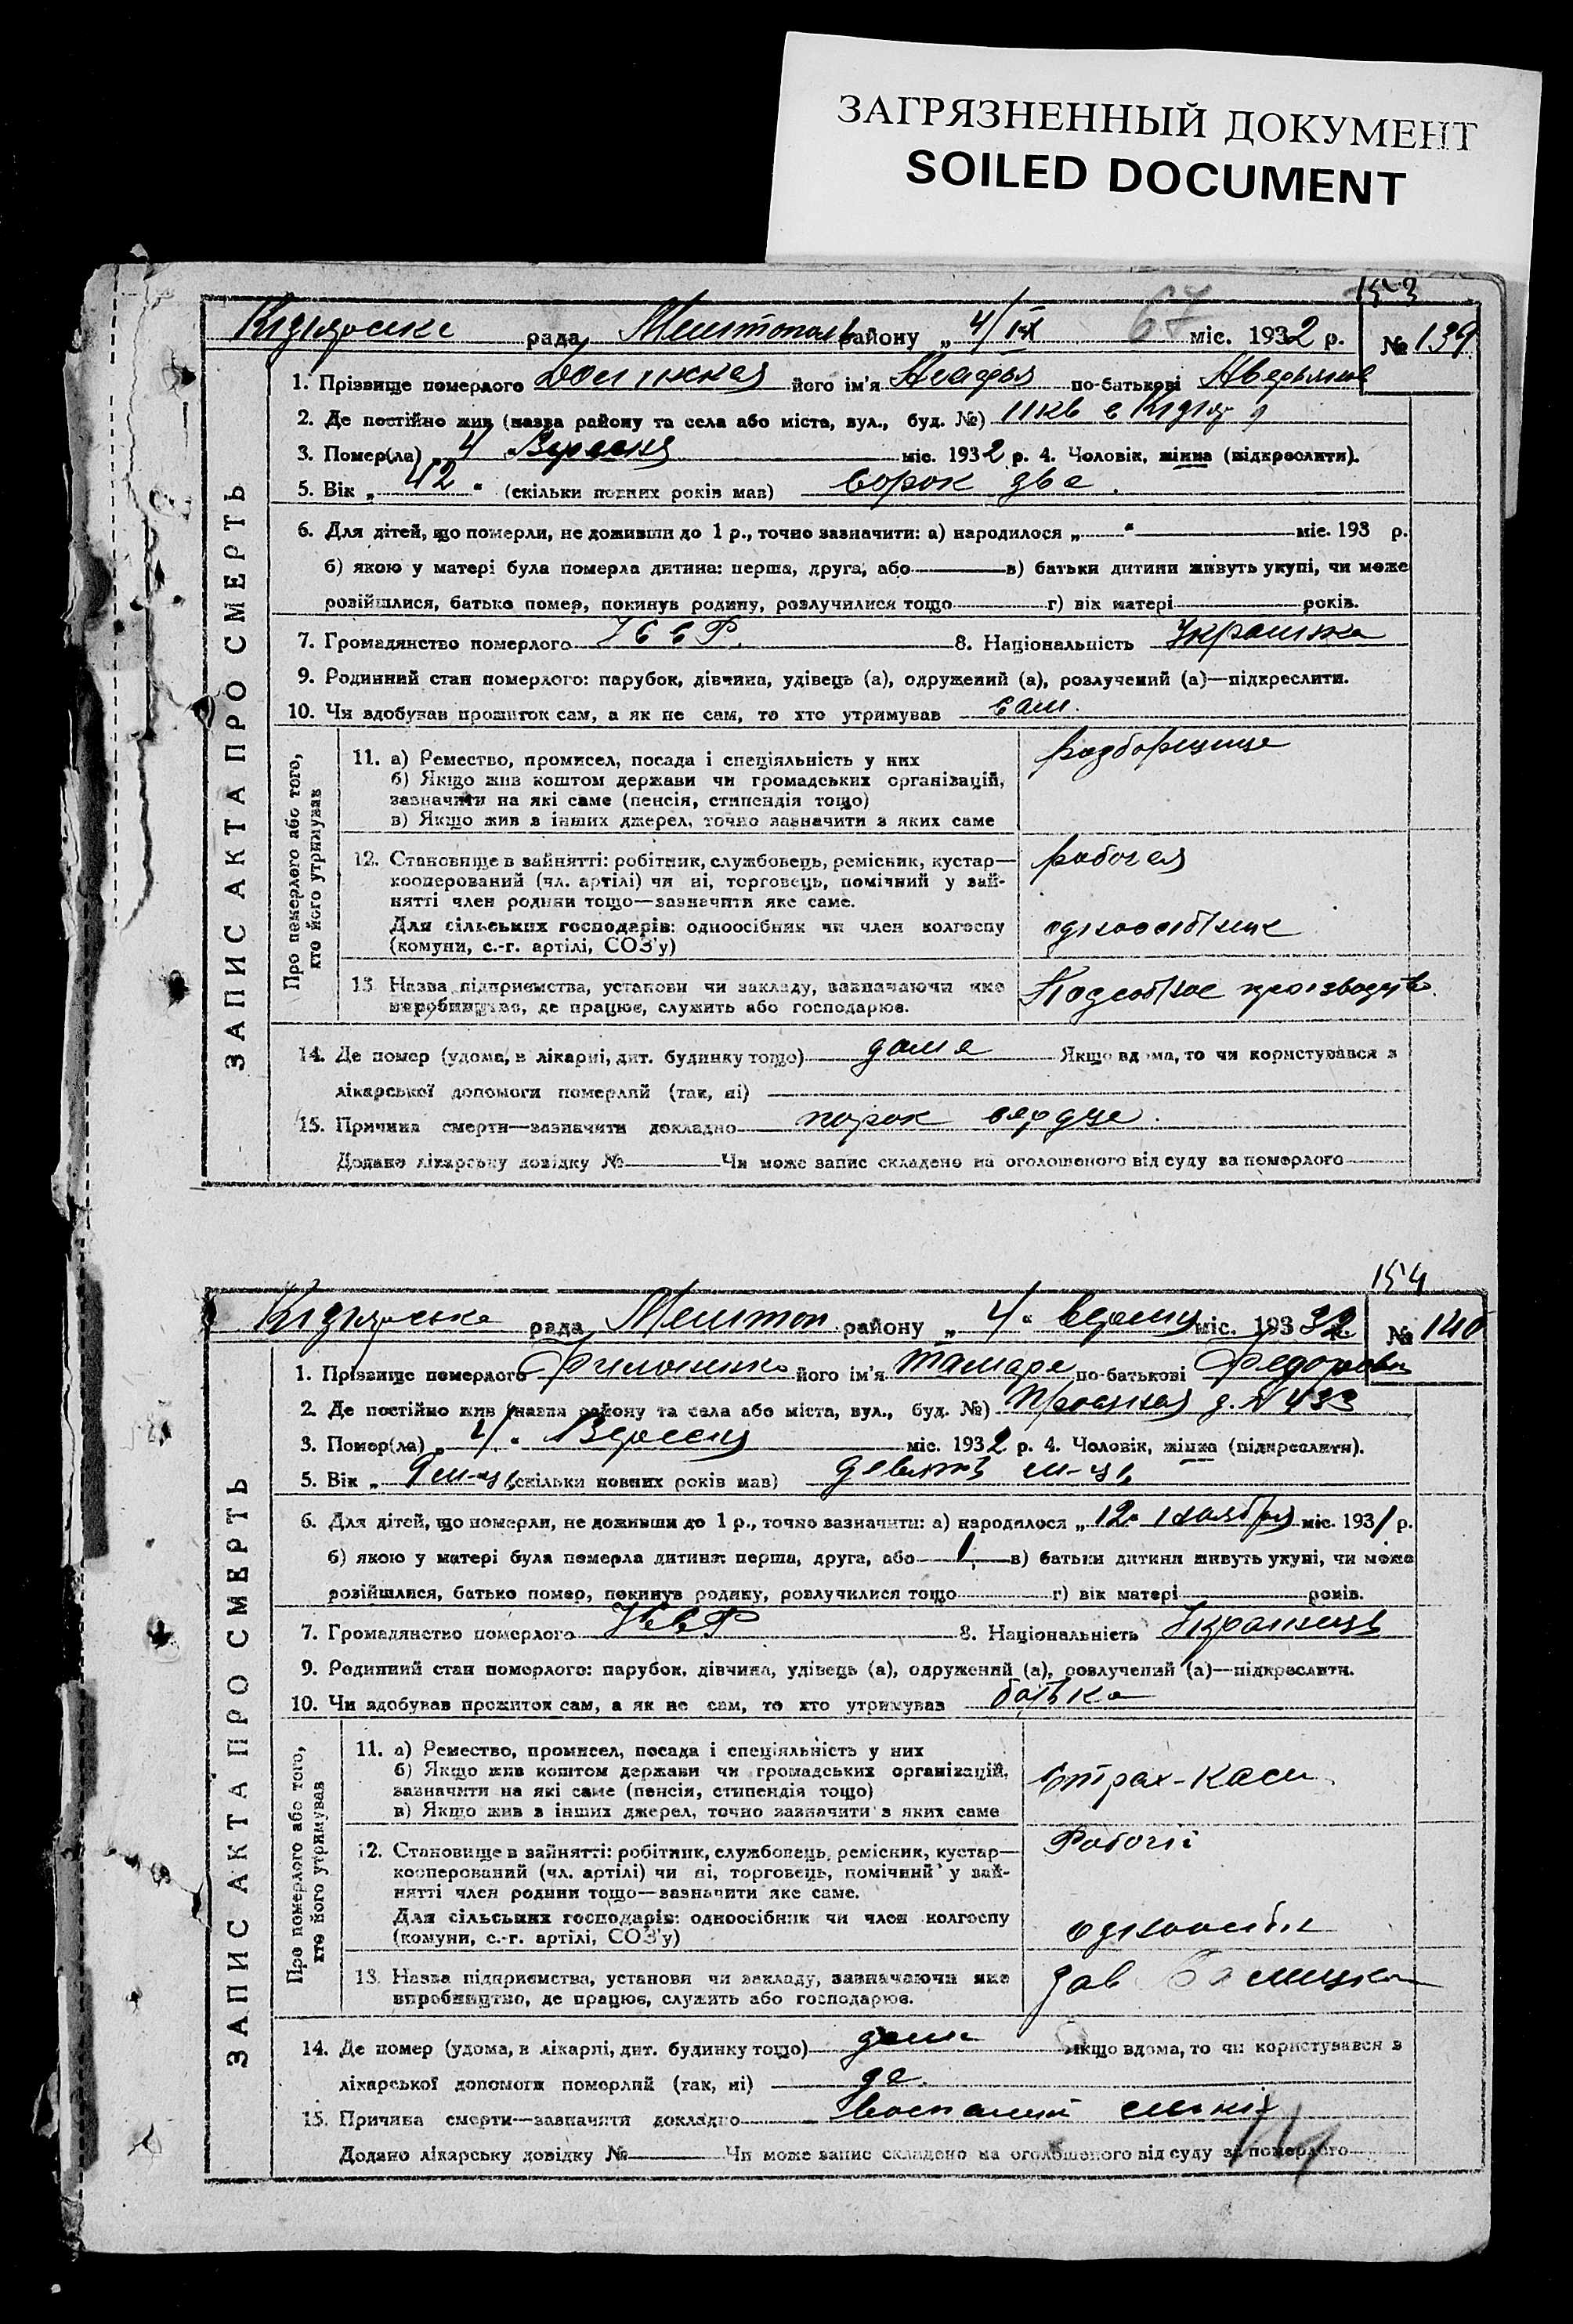 ЗАГРЯЗНЕННЫЙ ДОКУМЕНТ
SOILED DOCUMENT
67
153
рада район у „4/IX міс. 1932 р. № 139
1. Прізвище померлого його ім'я по-батькові
2. Де постійно жив (назва району та села або міста, вул., буд. №)
3. Помер(ла) „4 Вересня міс. 1932 р. 4. Чоловік, жінка (підкреслити).
5. Вік „42" (скільки повних років мав) сорок два
6. Для дітей, що померли, не доживши до 1 р., точно зазначити: а) народилося „ " міс. 193 р.
б) якою у матері була померла дитина: перша, друга, або в) батьки дитини живуть укупі, чи може
розійшлися, батько помер, покинув родину, розлучилися тощо г) вік матері років.
7. Громадянство померлого УССР. 8. Національність Українка
9. Родинний стан померлого: парубок, дівчина, удівець (а), одружений (а), розлучений (а)—підкреслити.
10. Чи здобував прожиток сам, а як не сам, то хто утримував сам.
ЗАПИС АКТА ПРО СМЕРТЬ
Про померлого або того,
хто його утримував
11. а) Ремество, промисел, посада і спеціяльність у них
б) Якщо жив коштом держави чи громадських організацій,
зазначити на які саме (пенсія, стипендія тощо)
в) Якщо жив з інших джерел, точно зазначити з яких саме
12. Становище в зайнятті: робітник, службовець, ремісник, кустар—
кооперований (чл. артілі) чи ні, торговець, помічний у зай-
нятті член родини тощо—зазначити яке саме.
рабочая
Для сільських господарів: одноосібник чи член колгоспу
(комуни, с.-г. артілі, СОЗ'у)
13. Назва підприємства, установи чи закладу, зазначаючи яке
виробництво, де працює, служить або господарює.
14. Де помер (удома, в лікарні, дит. будинку тощо) дома Якщо вдома, то чи користувався з
лікарської допомоги померлий (так, ні)
15. Причина смерти—зазначити докладно порок сердце.
Додано лікарську довідку № Чи може запис складено на оголошеного від суду за померлого
154
рада район у „4" міс. 1932 р. № 140
1. Прізвище померлого його ім'я Тамара по-батькові
2. Де постійно жив (назва району та села або міста, вул., буд. №) д. № 433
3. Помер(ла) „4" Вересня міс. 1932 р. 4. Чоловік, жінка (підкреслити).
5. Вік „9 м-ць (скільки повних років мав) девять м-ць
6. Для дітей, що померли, не доживши до 1 р., точно зазначити: а) народилося „12" ноября міс. 1931 р.
б) якою у матері була померла дитина: перша, друга, або 1 в) батьки дитини живуть укупі, чи може
розійшлися, батько помер, покинув родину, розлучилися тощо г) вік матері років.
7. Громадянство померлого УССР 8. Національність
9. Родинний стан померлого: парубок, дівчина, удівець (а), одружений (а), розлучений (а)—підкреслити.
10. Чи здобував прожиток сам, а як не сам, то хто утримував батько
ЗАПИС АКТА ПРО СМЕРТЬ
Про померлого або того,
хто його утримував
11. а) Ремество, промисел, посада і спеціяльність у них
б) Якщо жив коштом держави чи громадських організацій,
зазначити на які саме (пенсія, стипендія тощо)
в) Якщо жив з інших джерел, точно зазначити з яких саме
12. Становище в зайнятті: робітник, службовець, ремісник, кустар—
кооперований (чл. артілі) чи ні, торговець, помічний у зай-
нятті член родини тощо—зазначити яке саме.
Рабочій
Для сільських господарів: одноосібник чи член колгоспу
(комуни, с.-г. артілі, СОЗ'у)
13. Назва підприємства, установи чи закладу, зазначаючи яке
виробництво, де працює, служить або господарює.
14. Де помер (удома, в лікарні, дит. будинку тощо) дома Якщо вдома, то чи користувався з
лікарської допомоги померлий (так, ні) да.
15. Причина смерти—зазначити докладно
Додано лікарську довідку № Чи може запис складено на оголошеного від суду за померлого